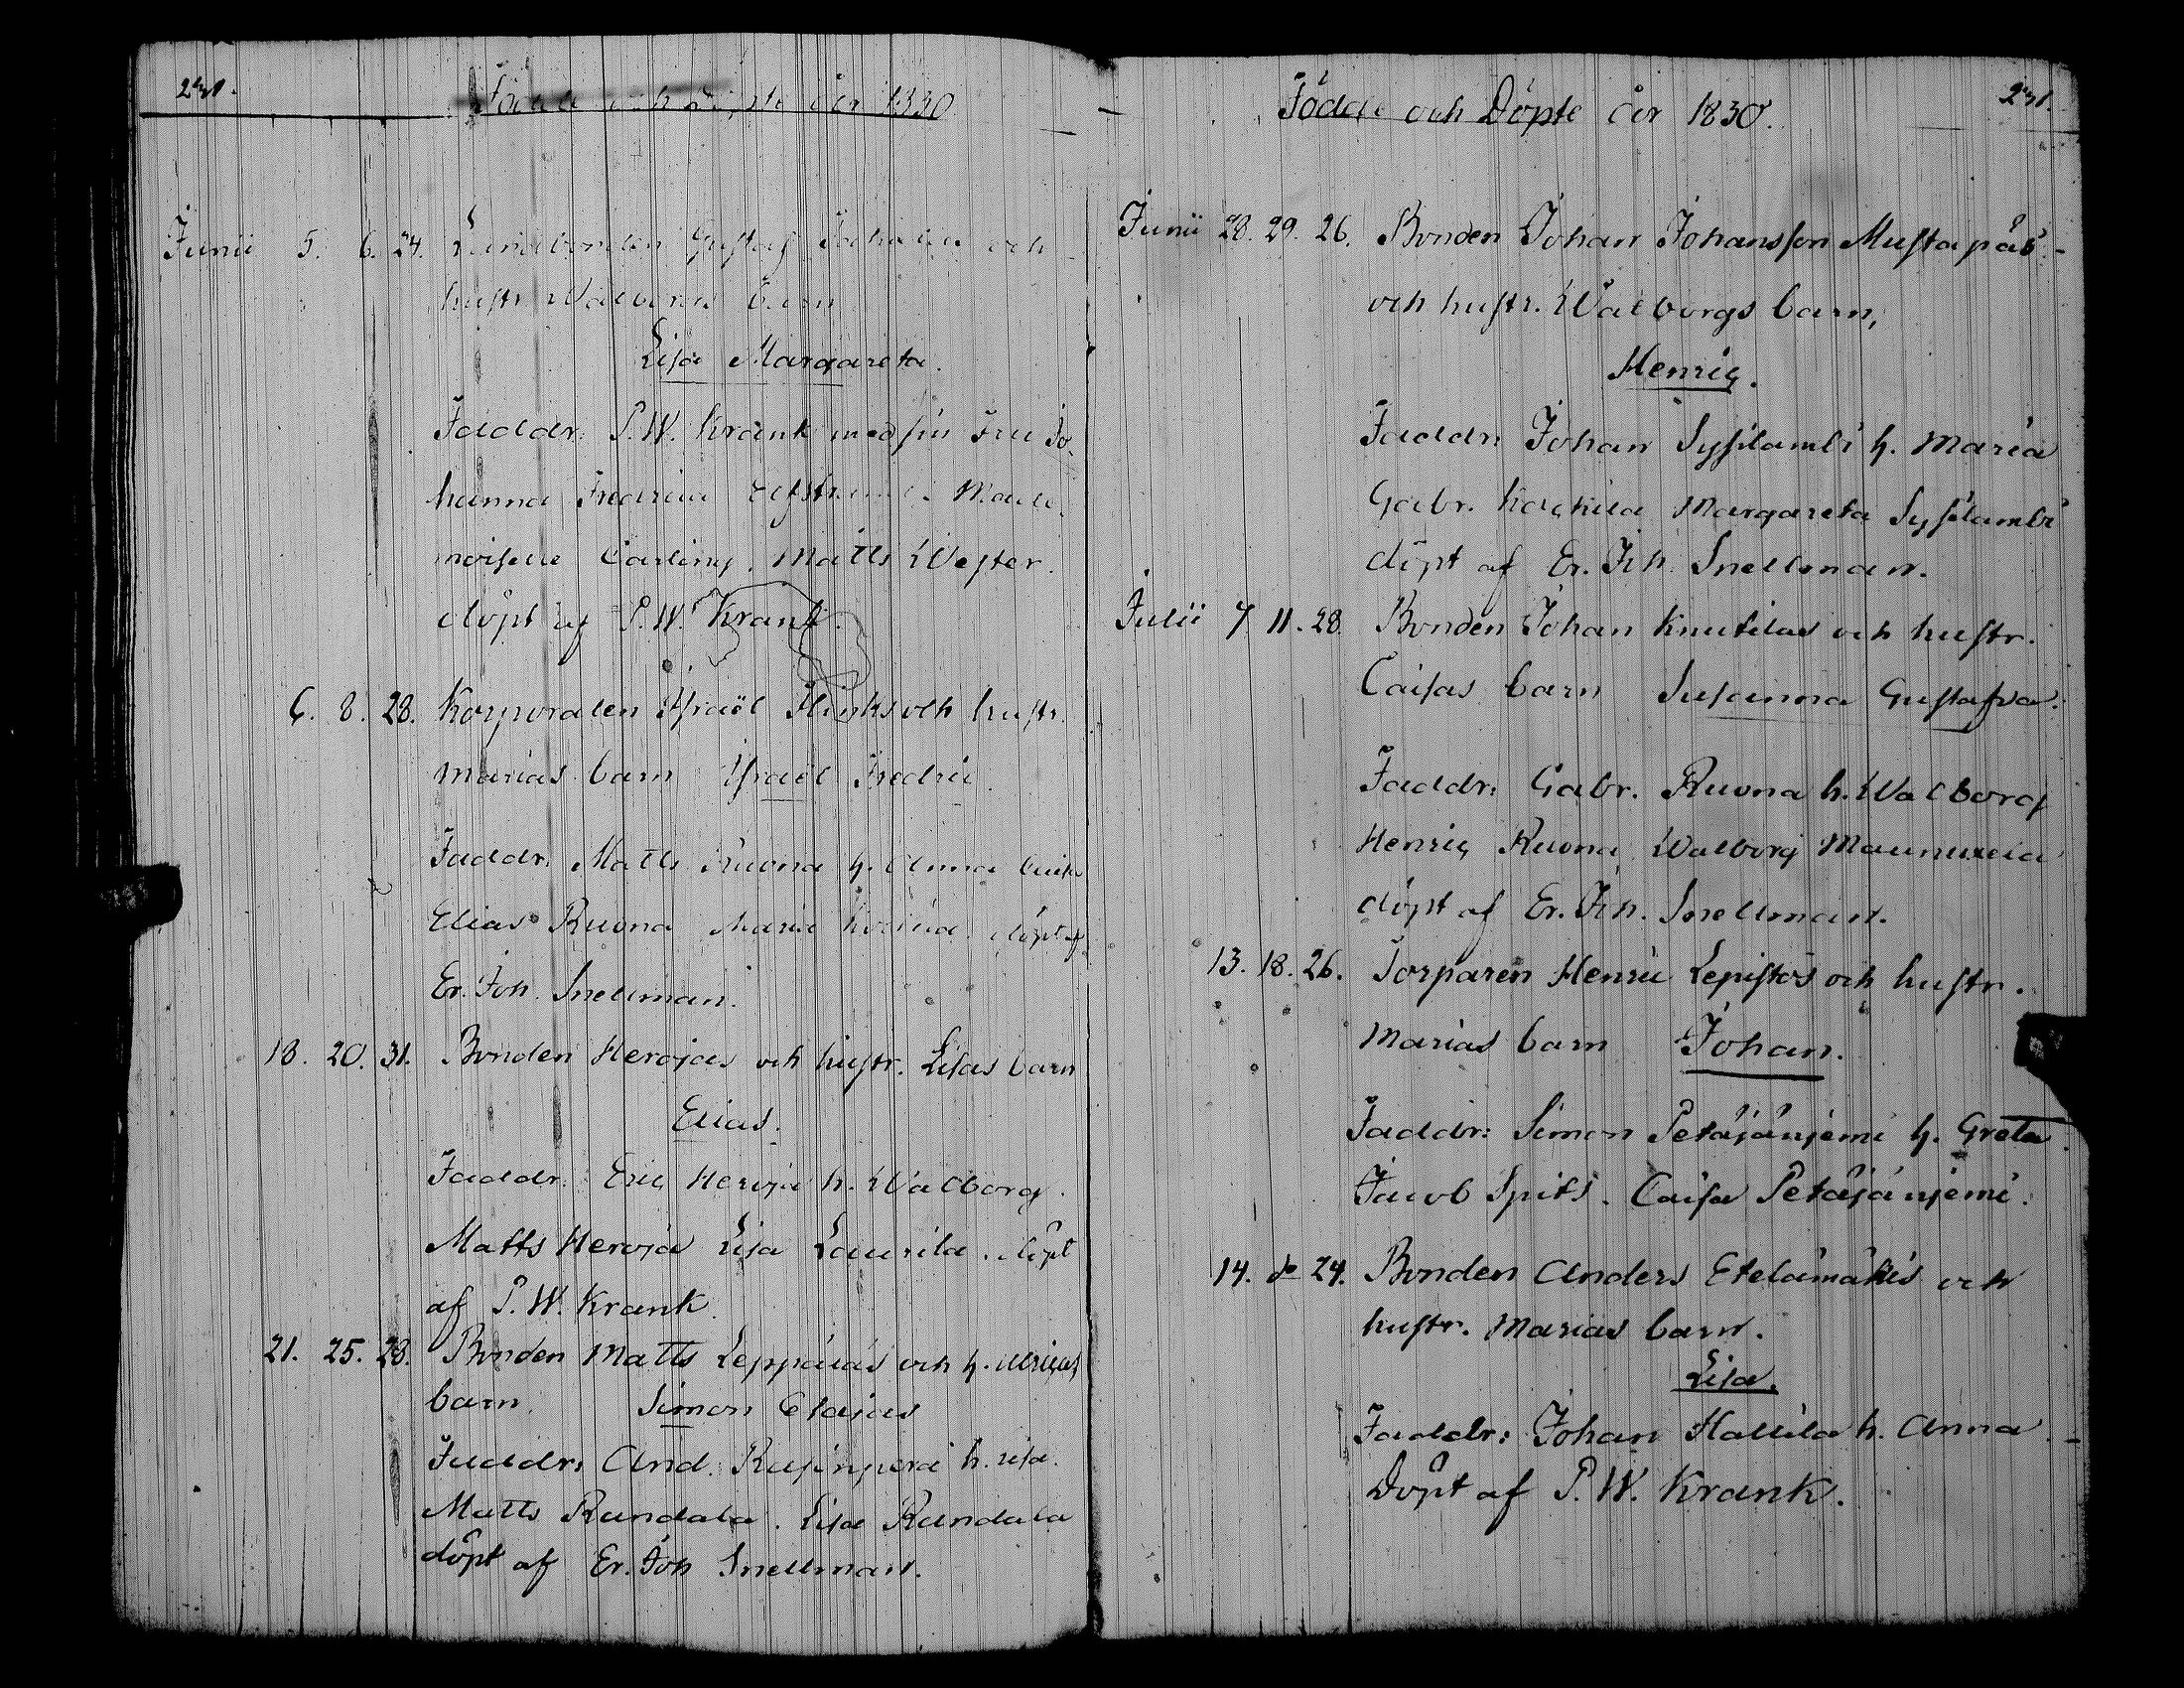 231.
Födde och Döpte år 1830
Junii 5. 6. 24. Landbonden Gustaf och
hustr. Walborgs barn
Lisa Margareta.
Faddr. P. W. Krank med sin Fru Jo-
hanna Fredrica Made-
moiselle Carling. Matts Wester.
döpt af P. W. Krank.
6. 8. 28. Korporalen Israël Flinks och hustr.
Marias barn Israël Fredric.
Faddr. Matts Ruona h. Anna Caisa
Elias Ruona Maria döpt af
Er. Joh. Snellman.
18. 20. 31. Bonden Herojas och hustr. Lisas barn
Elias.
Faddr. Eric Heroja h. Walborg.
Matts Heroja Lisa Laurila. döpt
af P. W. Krank.
21. 25. 28. Bonden Matts Leppäläs och h. Ulricas
barn. Simon Esaias
Faddr. And. Rusinperä h. Lisa.
Matts Rundala. Lisa Rundala
döpt af Er. Joh Snellman.
Födde och Döpte år 1830.
231.
Junii 28. 29. 26. Bonden Johan Johansson Mustapäs
och hustr. Walborgs barn,
Henric.
Faddr. Johan Syssilambi h. Maria
Gabr. Margareta Syssilambi
döpt af Er. Joh. Snellman.
Julii 7 11. 28. Bonden Johan Knutilas och hustr.
Caisas barn Susanna Gustafva.
Faddr. Gabr. Ruona h. Walborg
Henric Ruona Walborg Maunuxela
döpt af Er. Joh. Snellman.
13. 18. 26. Torparen Henric Lepistös och hustr.
Marias barn Johan.
Faddr: Simon Petäjäniemi h. Greta.
Jacob Spits. Caisa Petäjäniemi.
14. do 24. Bonden Anders Etelämäkis och
hustr. Marias barn.
Lisa.
Faddr: Johan Hallila h. Anna
Döpt af P. W. Krank.